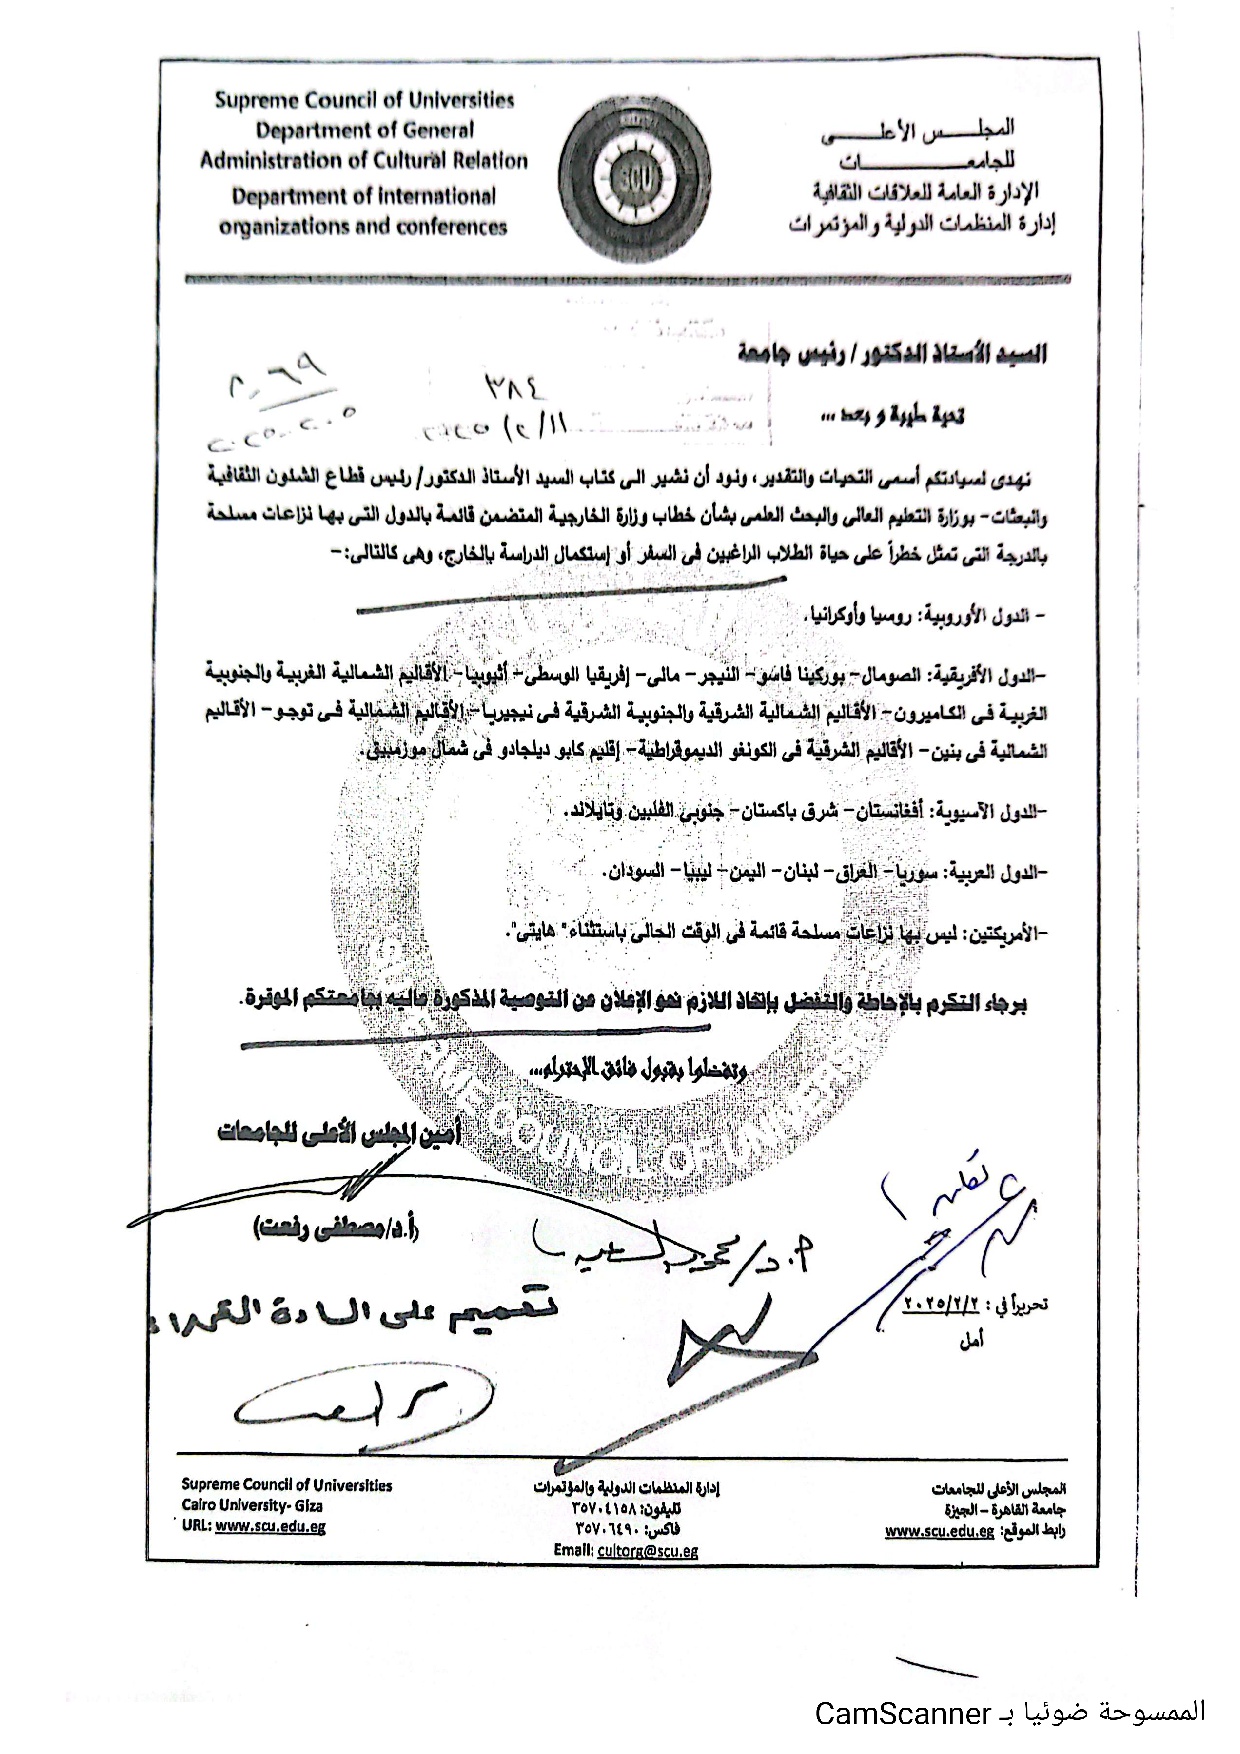 Supreme Council of Universities
Department of General
Administration of Cultural Relation
Department of international
organizations and conferences
SCU
المجلـــــس الأعلـــــى
للجامعـــــــــــات
الإدارة العامة للعلاقات الثقافية
إدارة المنظمات الدولية والمؤتمرات
السيد الأستاذ الدكتور/ رئيس جامعة
٣٨٤
تحية طيبة و بعد ...
نهدى لسيادتكم أسمى التحيات والتقدير، ونود أن نشير الى كتاب السيد الأستاذ الدكتور/ رئيس قطاع الشئون الثقافية
والبعثات- بوزارة التعليم العالى والبحث العلمى بشأن خطاب وزارة الخارجية المتضمن قائمة بالدول التى بها نزاعات مسلحة
بالدرجة التى تمثل خطراً على حياة الطلاب الراغبين فى السفر أو إستكمال الدراسة بالخارج، وهى كالتالى:-
- الدول الأوروبية: روسيا وأوكرانيا.
-الدول الأفريقية: الصومال- بوركينا فاسو- النيجر- مالى- إفريقيا الوسطى- أثيوبيا- الأقاليم الشمالية الغربية والجنوبية
الغربية فى الكاميرون- الأقاليم الشمالية الشرقية والجنوبية الشرقية فى نيجيريا- الأقاليم الشمالية فى توجو- الأقاليم
الشمالية فى بنين- الأقاليم الشرقية فى الكونغو الديموقراطية- إقليم كابو ديلجادو فى شمال موزمبيق.
-الدول الآسيوية: أفغانستان- شرق باكستان- جنوبي الفلبين وتايلاند.
-الدول العربية: سوريا- العراق- لبنان- اليمن- ليبيا- السودان.
-الأمريكتين: ليس بها نزاعات مسلحة قائمة فى الوقت الحالى باستثناء" هايتى".
برجاء التكرم بالإحاطة والتفضل بإتخاذ اللازم نحو الإعلان عن التوصية المذكورة عاليه بجامعتكم الموقرة.
وتفضلوا بقبول فائق الإحترام...
أمين المجلس الأعلى للجامعات
(أ.د/مصطفى رفعت)
تحريراً في : ٢٠٢٥/٢/٢
أمل
تعميم على السادة
Supreme Council of Universities
Cairo University- Giza
URL: www.scu.edu.eg
إدارة المنظمات الدولية والمؤتمرات
تليفون: ٣٥٧٠٤١٥٨
فاكس: ٣٥٧٠٦٤٩٠
Email: cultorg@scu.eg
المجلس الأعلى للجامعات
جامعة القاهرة – الجيزة
رابط الموقع: www.scu.edu.eg
الممسوحة ضوئيا بـ CamScanner